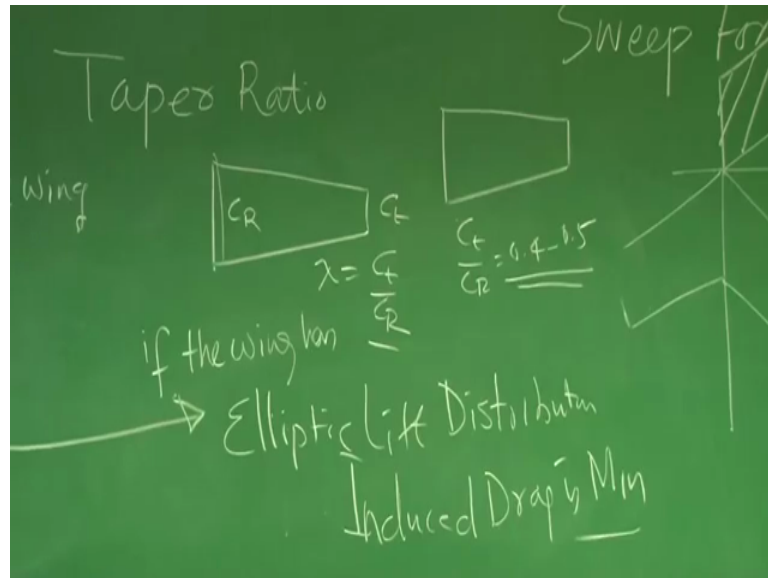 Sweep for
Taper Ratio
wing
CR
Ct
λ = Ct/CR
Ct/CR = 0.4-0.5
if the wing has
Elliptic Lift Distribution
Induced Drag is Min